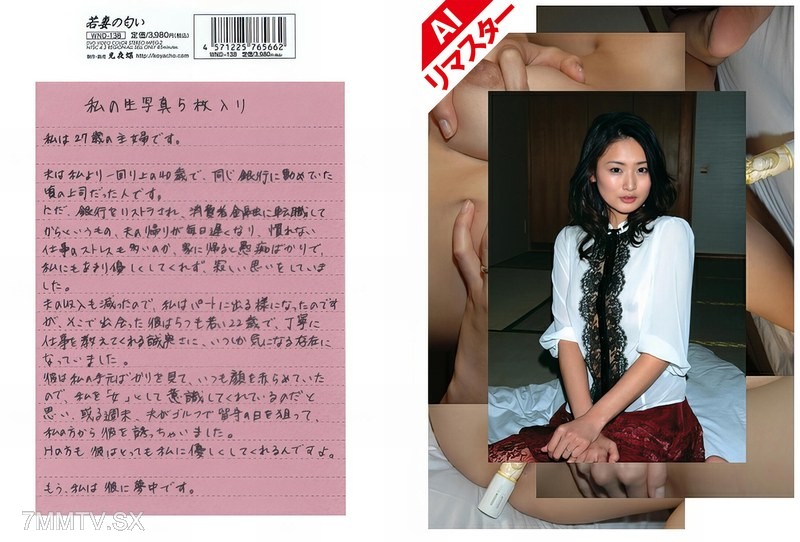 若妻の匂い
WND-138 定価/3,980円(税込)
DVD VIDEO COLOR STEREO MPEG-2
制作・販売 光夜蝶 http://koyacho.com
4 571225 765662
WND-138 定価/3,980円(税込)
AI
リマスター
私の生写真5枚入り
私は27歳の主婦です。
夫は私より一回り上の40歳で、同じ銀行に勤めていた
頃の上司だった人です。
ただ、銀行をリストラされ、消費者金融に転職して
からというもの、夫の帰りが毎日遅くなり、慣れない
仕事のストレスも多いのか、家に帰ると愚痴ばかりで、
私にもあまり優しくしてくれず、寂しい思いをしていま
した。
夫の収入も減ったので、私はパートに出る様になったのです
が、そこで出会った彼は5つも若い22歳で、丁寧に
仕事を教えてくれる誠実さに、いつしか気になる存在に
なっていました。
彼は私の手元ばかりを見て、いつも顔を赤らめていた
ので、私を「女」として意識してくれているのだと
思い、或る週末、夫がゴルフで留守の日を狙って、
私の方から彼を誘っちゃいました。
Hの方も彼はとっても私に優しくしてくれるんですよ。
もう、私は彼に夢中です。
7MMTV.SX